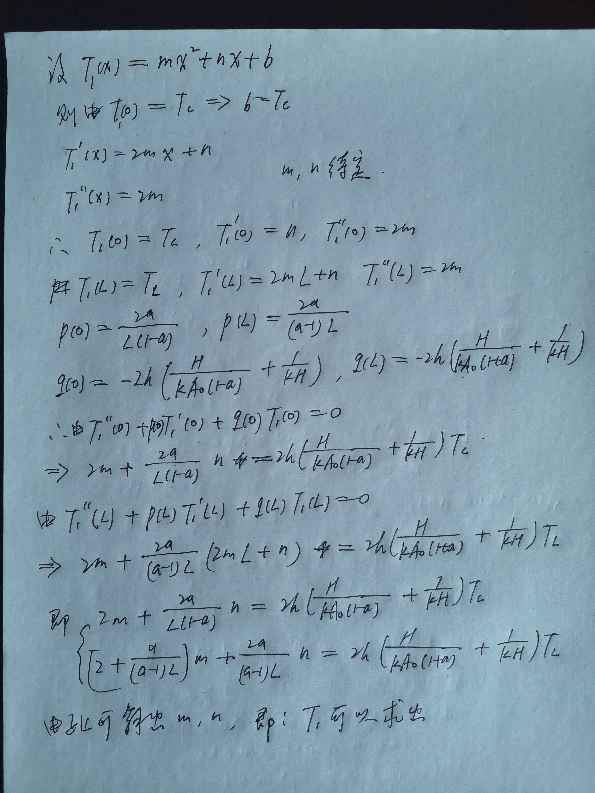 设 T₁(x) = mx² + nx + b
则由 T₁(0) = Tc ⇒ b = Tc
T₁'(x) = 2mx + n
m, n 待定.
T₁''(x) = 2m
∴ T₁(0) = Tc , T₁'(0) = n, T₁''(0) = 2m
T₁(L) = T_L , T₁'(L) = 2mL + n T₁''(L) = 2m
p(0) = 2a/(L(1-a)) , p(L) = 2a/((a-1)L)
q(0) = -2h(H/(kA₀(1-a)) + 1/(kH)), q(L) = -2h(H/(kA₀(1+a)) + 1/(kH))
∴由 T₁''(0) + p(0)T₁'(0) + q(0)T₁(0) = 0
⇒ 2m + 2a/(L(1-a)) n = 2h(H/(kA₀(1-a)) + 1/(kH))Tc.
由 T₁''(L) + p(L)T₁'(L) + q(L)T₁(L) = 0
⇒ 2m + 2a/((a-1)L) (2mL + n) = 2h(H/(kA₀(1+a)) + 1/(kH))T_L
即 { 2m + 2a/(L(1-a)) n = 2h(H/(kA₀(1-a)) + 1/(kH))Tc
[2 + a/((a-1)L)]m + 2a/((a-1)L) n = 2h(H/(kA₀(1+a)) + 1/(kH))T_L
由此可解出 m, n, 即: T₁可以求出